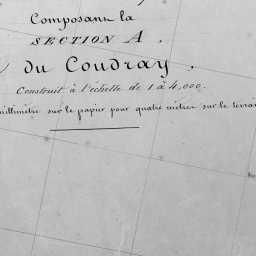 Composant la
SECTION A.
du Coudray.
Construit à l'échelle de 1 à 4,000.
millimètre sur le papier pour quatre mètres sur le terrain